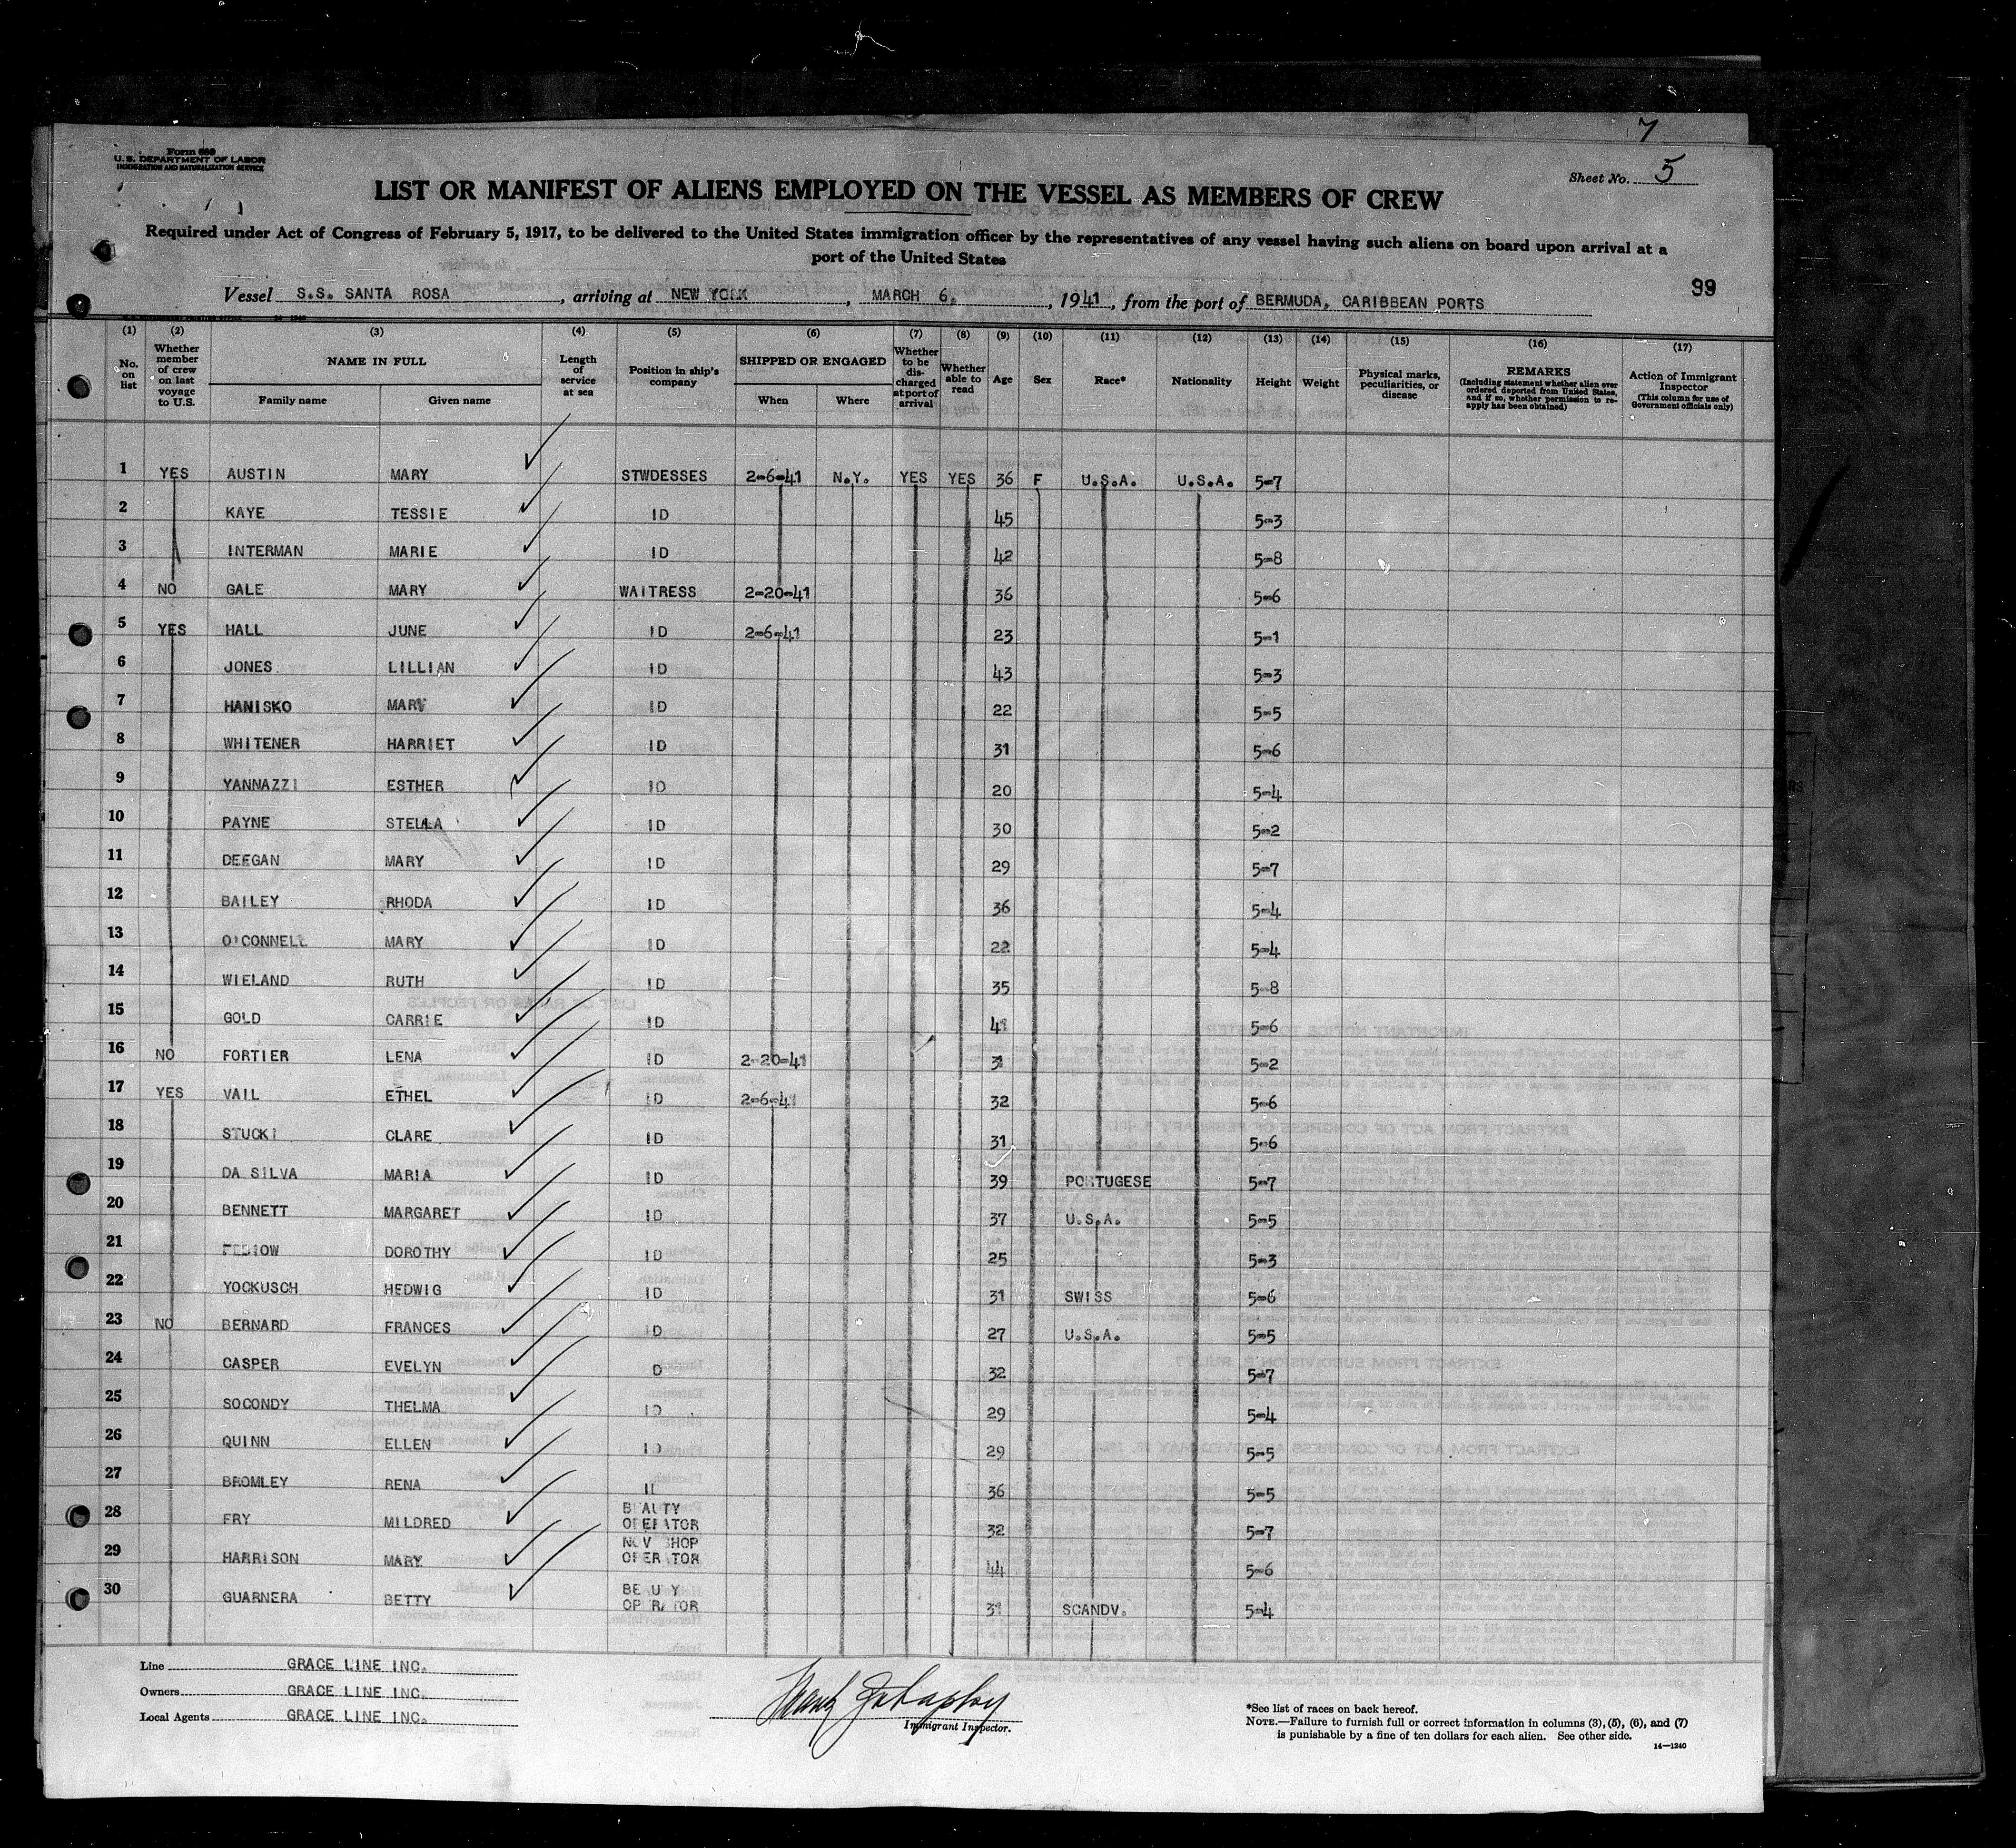 7
Form 689
U. S. DEPARTMENT OF LABOR
IMMIGRATION AND NATURALIZATION SERVICE
Sheet No. 5
LIST OR MANIFEST OF ALIENS EMPLOYED ON THE VESSEL AS MEMBERS OF CREW
Required under Act of Congress of February 5, 1917, to be delivered to the United States immigration officer by the representatives of any vessel having such aliens on board upon arrival at a
port of the United States
99
Vessel S.S. SANTA ROSA, arriving at NEW YORK, MARCH 6, 1941, from the port of BERMUDA, CARIBBEAN PORTS
(1) (2) (3) (4) (5) (6) (7) (8) (9) (10) (11) (12) (13) (14) (15) (16) (17)
No. on list
Whether member of crew on last voyage to U.S.
NAME IN FULL
Family name Given name
Length of service at sea
Position in ship's company
SHIPPED OR ENGAGED
When Where
Whether to be discharged at port of arrival
Whether able to read
Age
Sex
Race*
Nationality
Height
Weight
Physical marks, peculiarities, or disease
REMARKS
(Including statement whether alien ever ordered deported from United States, and if so, whether permission to reapply has been obtained)
Action of Immigrant Inspector
(This column for use of Government officials only)
1 YES AUSTIN MARY STWDESSES 2-6-41 N.Y. YES YES 36 F U.S.A. U.S.A. 5-7
2 KAYE TESSIE ID 45 5-3
3 INTERMAN MARIE ID 42 5-8
4 NO GALE MARY WAITRESS 2-20-41 36 5-6
5 YES HALL JUNE ID 2-6-41 23 5-1
6 JONES LILLIAN ID 43 5-3
7 HANISKO MARY ID 22 5-5
8 WHITENER HARRIET ID 31 5-6
9 YANNAZZI ESTHER ID 20 5-4
10 PAYNE STELLA ID 30 5-2
11 DEEGAN MARY ID 29 5-7
12 BAILEY RHODA ID 36 5-4
13 O'CONNELL MARY ID 22 5-4
14 WIELAND RUTH ID 35 5-8
15 GOLD CARRIE ID 41 5-6
16 NO FORTIER LENA ID 2-20-41 31 5-2
17 YES VAIL ETHEL ID 2-6-41 32 5-6
18 STUCKI CLARE ID 31 5-6
19 DA SILVA MARIA ID 39 PORTUGESE 5-7
20 BENNETT MARGARET ID 37 U.S.A. 5-5
21 DOROTHY ID 25 5-3
22 YOCKUSCH HEDWIG ID 31 SWISS 5-6
23 NO BERNARD FRANCES ID 27 U.S.A. 5-5
24 CASPER EVELYN D 32 5-7
25 SOCONDY THELMA ID 29 5-4
26 QUINN ELLEN ID 29 5-5
27 BROMLEY RENA ID 36 5-5
28 FRY MILDRED BEAUTY OPERATOR 32 5-7
29 HARRISON MARY NOV SHOP OPERATOR 44 5-6
30 GUARNERA BETTY BEAUTY OPERATOR 31 SCANDV. 5-4
Line GRACE LINE INC.
Owners GRACE LINE INC.
Local Agents GRACE LINE INC.
Immigrant Inspector.
*See list of races on back hereof.
NOTE.—Failure to furnish full or correct information in columns (3), (5), (6), and (7)
is punishable by a fine of ten dollars for each alien. See other side.
14—1240